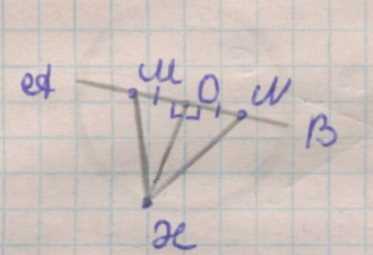 A M O N B
H